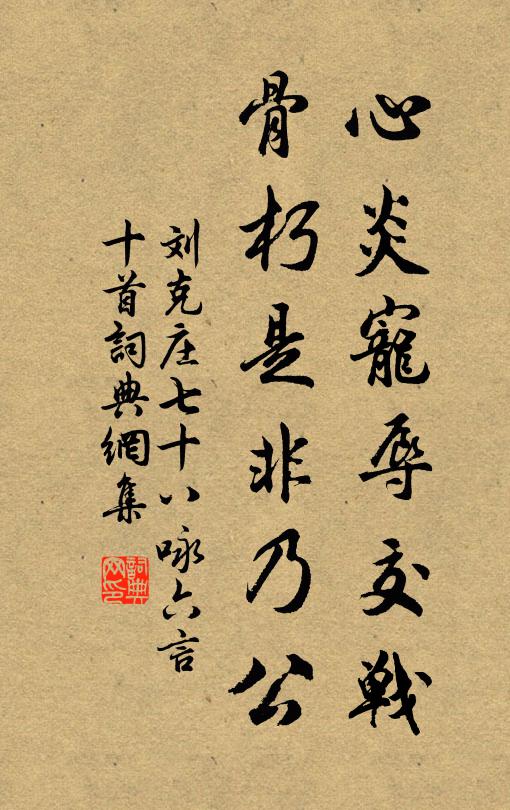 心炎寵辱交戰
骨朽是非乃公
刘克庄七十八咏六言
十首詞典網集
詞典网印